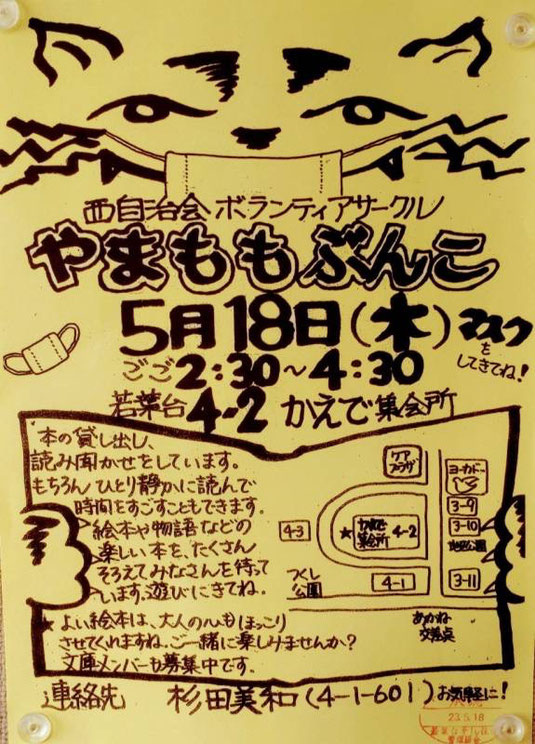 西自治会 ボランティアサークル
やまももぶんこ
5月18日(木)
マスクをしてきてね!
ごご2:30~4:30
若葉台 4-2 かえで集会所
本の貸し出し、
読み聞かせをしています。
もちろん ひとり静かに読んで
時間をすごすこともできます。
絵本や物語などの
楽しい本を、たくさん
そろえてみなさんを待って
います。遊びにきてね。
★よい絵本は、大人の心もほっこり
させてくれますね。ご一緒に楽しみませんか?
文庫メンバーも募集中です。
ケアプラザ
ヨーカドー
3-9
3-10
4-3
★
かえで集会所
4-2
つくし公園
4-1
3-11
あかね
交差点
連絡先 杉田美和(4-1-601) お気軽に!
23.5.18